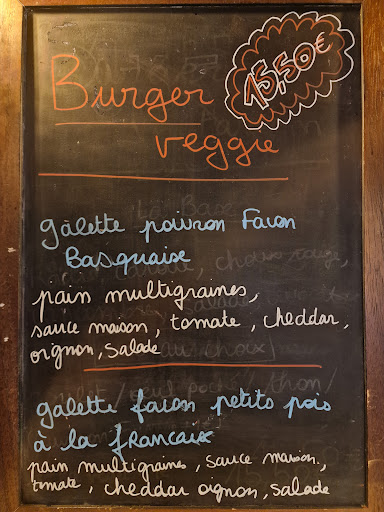 Burger
15,50€
veggie
galette poivron Façon
Basquaise
pain multigraines,
sauce maison, tomate, cheddar,
oignon, salade
galette façon petits pois
à la française
pain multigraines, sauce maison,
tomate, cheddar oignon, salade